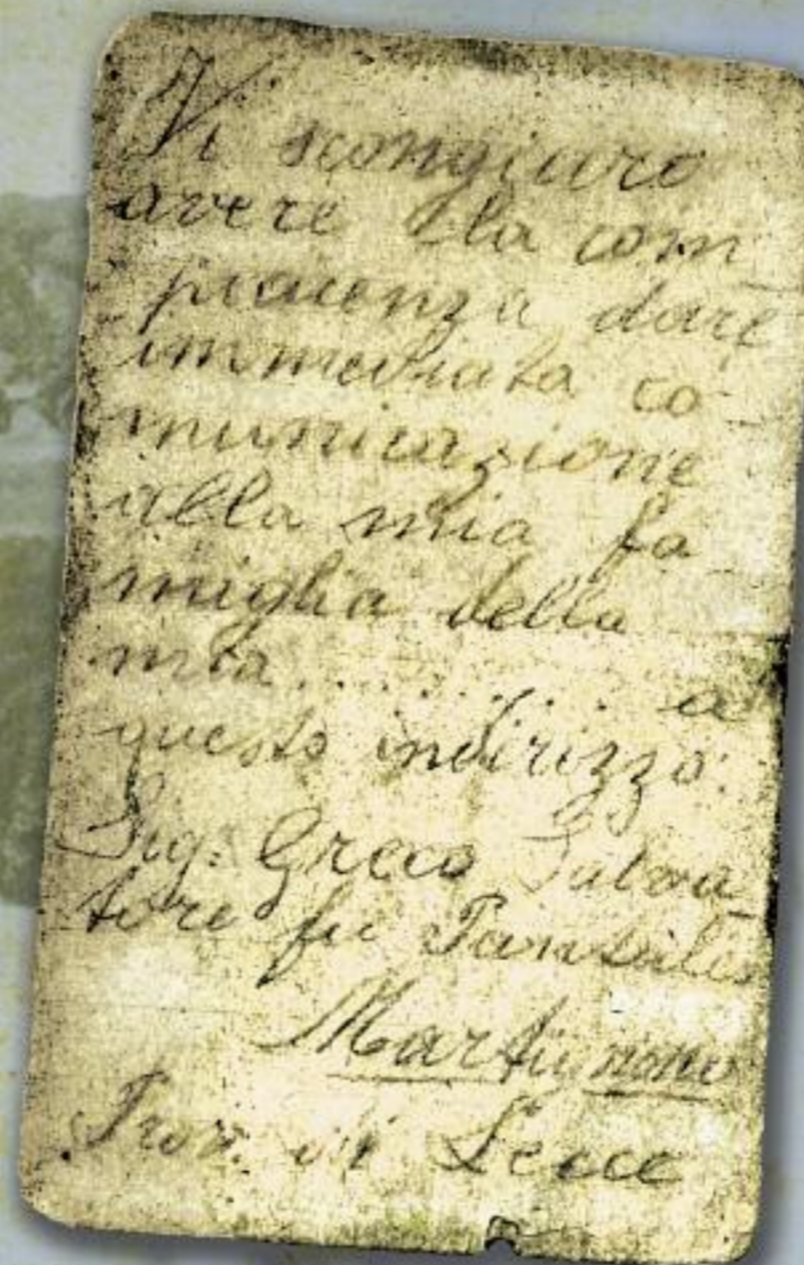 Vi scongiuro
avere la com-
piacenza dare
immediata co-
municazione
alla mia fa
miglia della
mia ......... a
questo indirizzo:
Sig. Greco Salva-
tore fu Pantaleo
Martignano
Prov. di Lecce